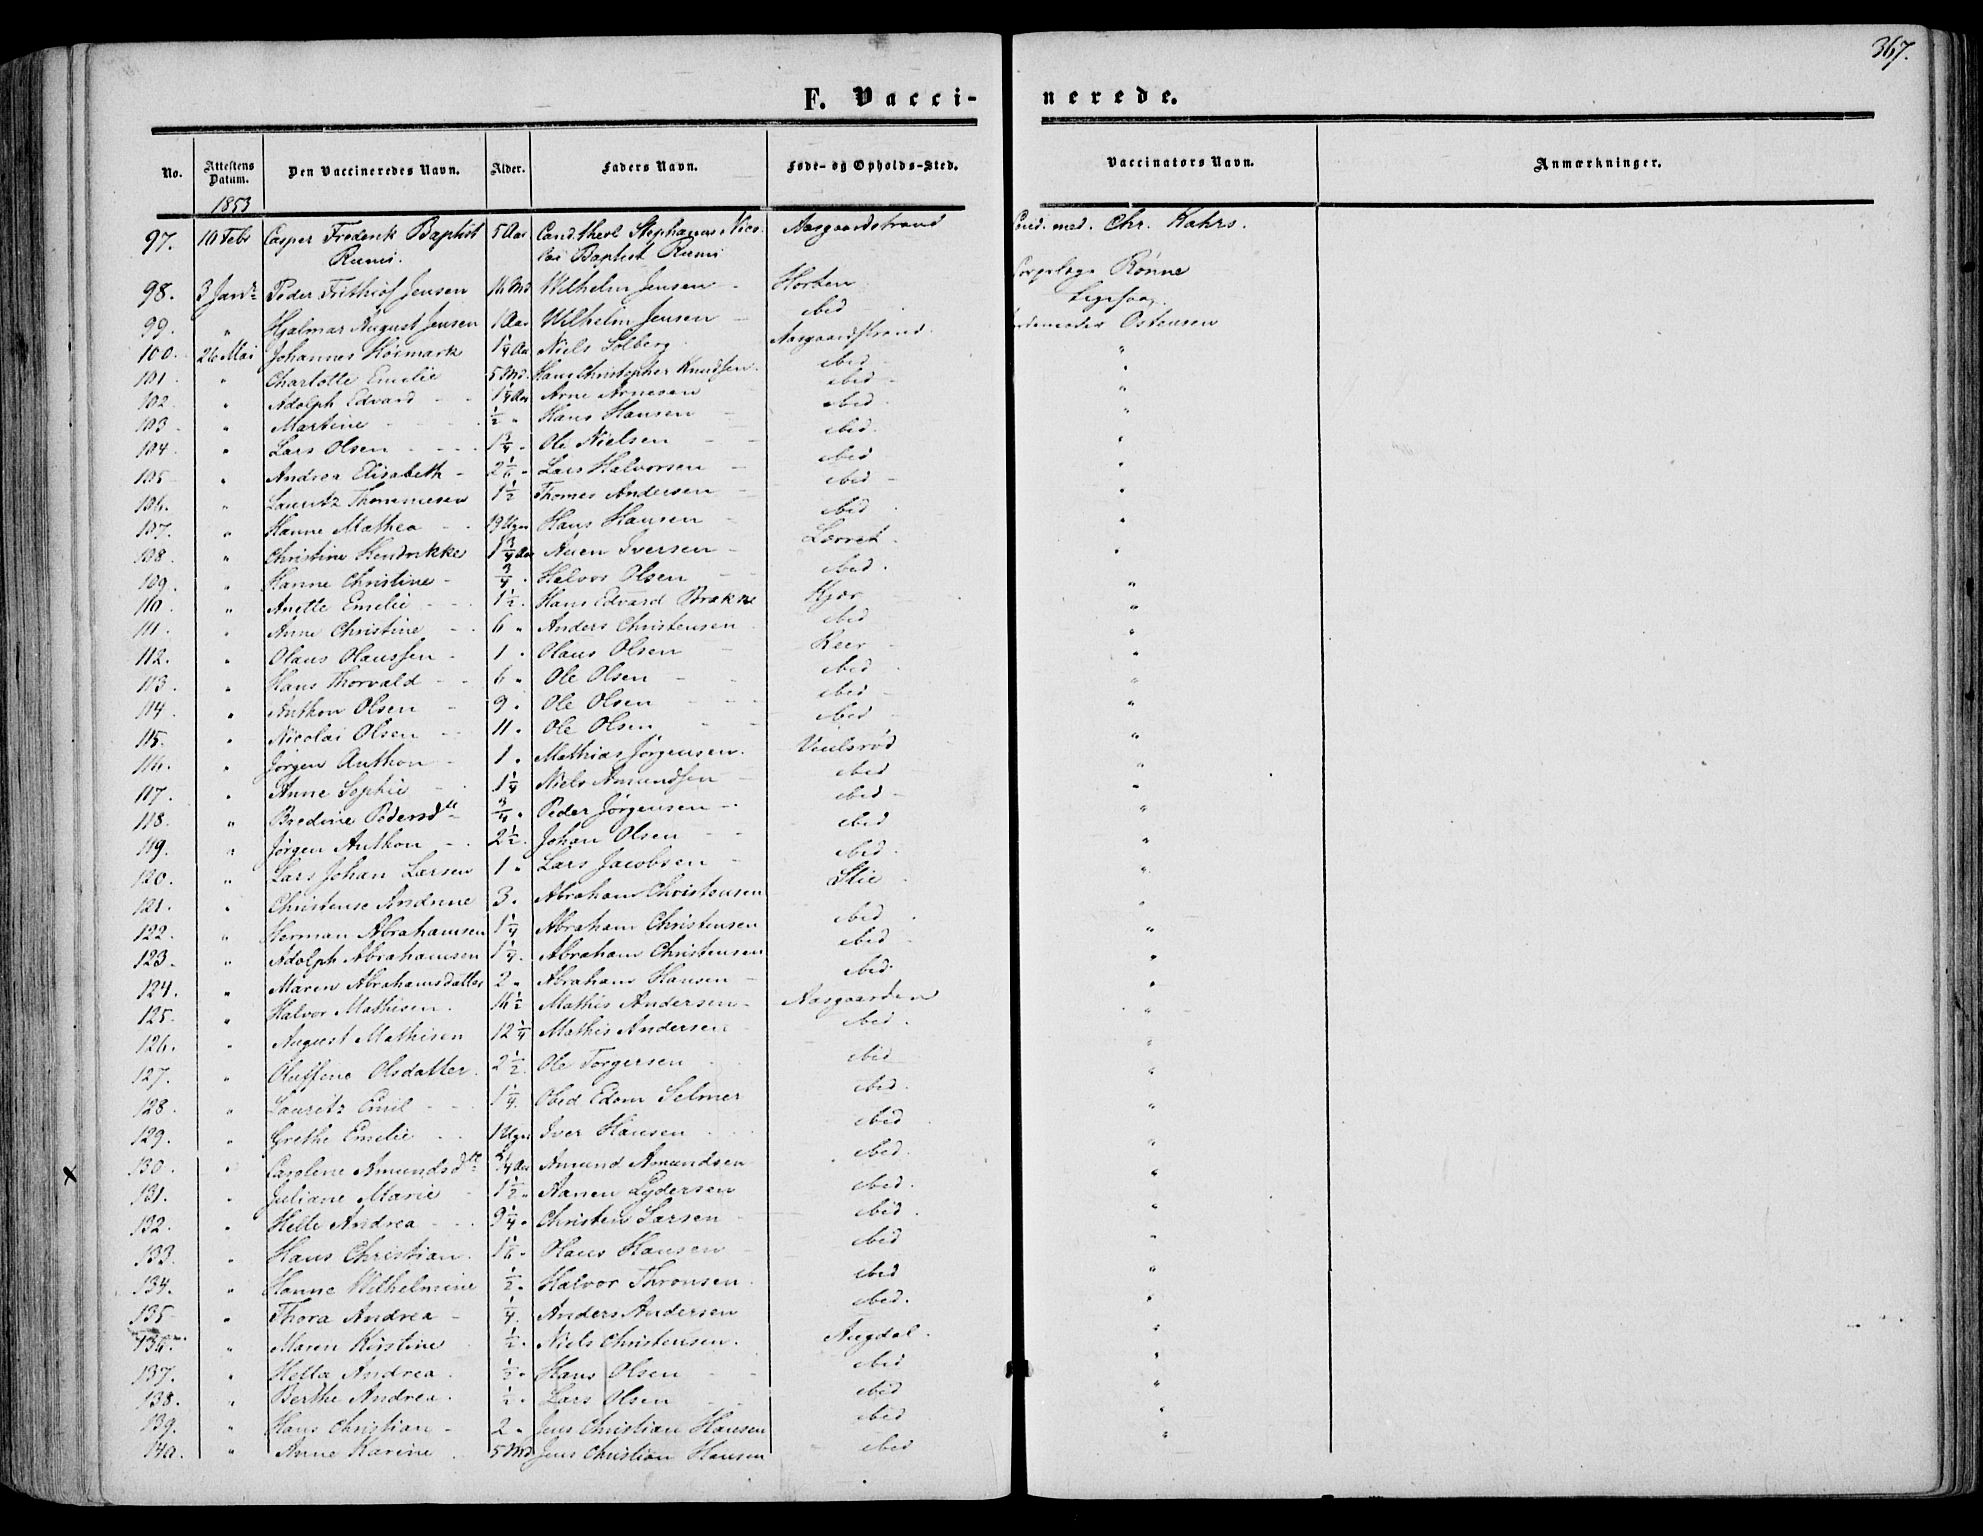 367.
F. Vacci- nerede.
No. Attestens Datum. Den Vaccineredes Navn. Alder. Faders Navn. Føde- og Opholds-Sted. Vaccinators Navn. Anmærkninger.
1853
97. 10 Febr Casper Frederik Baptist 5 Aar Cand. theol Stephanus Nico- Aasgaardstrand Cand. med. Chr. Kahrs.
lai Baptist
98. 3 Janr Peder Frithiof Jensen Md Wilhelm Jensen - Horten Rønne
99. " Hjalmar August Jensen 1 Aar Wilhelm Jensen - ibid
100. 26 Mai Johannes 1 1/4 Aar Niels Solberg Aasgaardstrand. Ostensen
101. " Charlotte Emelie 5 Md. Hans Christopher Knudsen. ibid - "
102. " Adolph Edvard 1 1/4 Aar Arne Arnesen ibid - "
103. " Martine 1/2 " Hans Hansen - ibid - "
104. " Lars Olsen 1 3/4 " Ole Nielsen ibid. "
105. " Andrea Elisabeth - 2 1/6 " Lars Halvorsen - ibid "
106. " Lauritz Thommesen 1 1/2 Thomes Andersen - ibid - "
107. " Hanne Mathea 13 Uger Hans Hansen - ibid . "
108. " Christine Hendrikke 1 3/4 Aar Iversen - "
109. " Hanne Christine - 3/4 . Halvor Olsen - ibid . "
110. " Anette Emelie 1 1/2 . Hans Edvard Brække "
111. " Anne Christine 6 " Anders Christensen ibid "
112. " Olaus Olaussen - 1 . Olaus Olsen - "
113. " Hans Thorvald 6 " Ole Olsen ibid "
114. " Anthon Olsen - 9 . Ole Olsen ibid - "
115. " Nicolai Olsen 11 . Ole Olsen ibid - "
116. " Jørgen Anthon - 1 . Mathias Jørgensen. "
117. " Anne Sophie - 1 1/4 Niels Amundsen - ibid "
118. " Bredine Pedersdtr 3/4 . Peder Jørgensen - ibid - "
119. " Jørgen Anthon 2 1/2 . Johan Olsen ibid "
120. " Lars Johan Larsen 1 . Lars Jacobsen - ibid . "
121. " Christense Andrine 3 . Abraham Christensen Slie . "
122. " Herman Abrahamsen 1 1/4 Abraham Christensen ibid . "
123. " Adolph Abrahamsen 1 1/4 . Abraham Christensen ibid - "
124. " Maren Abrahamsdatter 2 " Abraham Hansen - ibid. "
125. " Halvor Mathisen . 14 1/2 Mathis Andersen - Aasgaarden "
126. " August Mathisen 12 1/4 Mathis Andersen - ibid . "
127. " Olufsine Olsdatter . 2 1/2 . Ole Torgersen ibid "
128. " Lauritz Emil 1 1/4 . Obed Edom Selmer ibid . "
129. " Grethe Emelie Uger Iver Hansen ibid . "
130. " Carolene Amundsdtr Aar Amund Amundsen ibid. "
131. " Juliane Marie - 1 1/2 " Aanen Lydersen ibid . "
132. " Helle Andrea 9 1/4 " Christen Larsen - ibid . "
133. " Hans Christian . 1 1/6 . Olaus Hansen - ibid "
134. " Hanne Wilhelmine 1/2 " Halvor Thronsen . ibid "
135 " Thora Andrea - 1/4 . Anders Andersen ibid. "
136. " Maren Kirstine 1/2 . Niels Christensen . Augdal . "
137. " Hella Andrea . 1/2 . Hans Olsen ibid "
138. " Berthe Andrea . 1/2 . Lars Olsen ibid "
139. " Hans Christian - 2 . Jens Christian Hansen ibid "
140. " Anne Karine . 5 Md Jens Christian Hansen ibid "